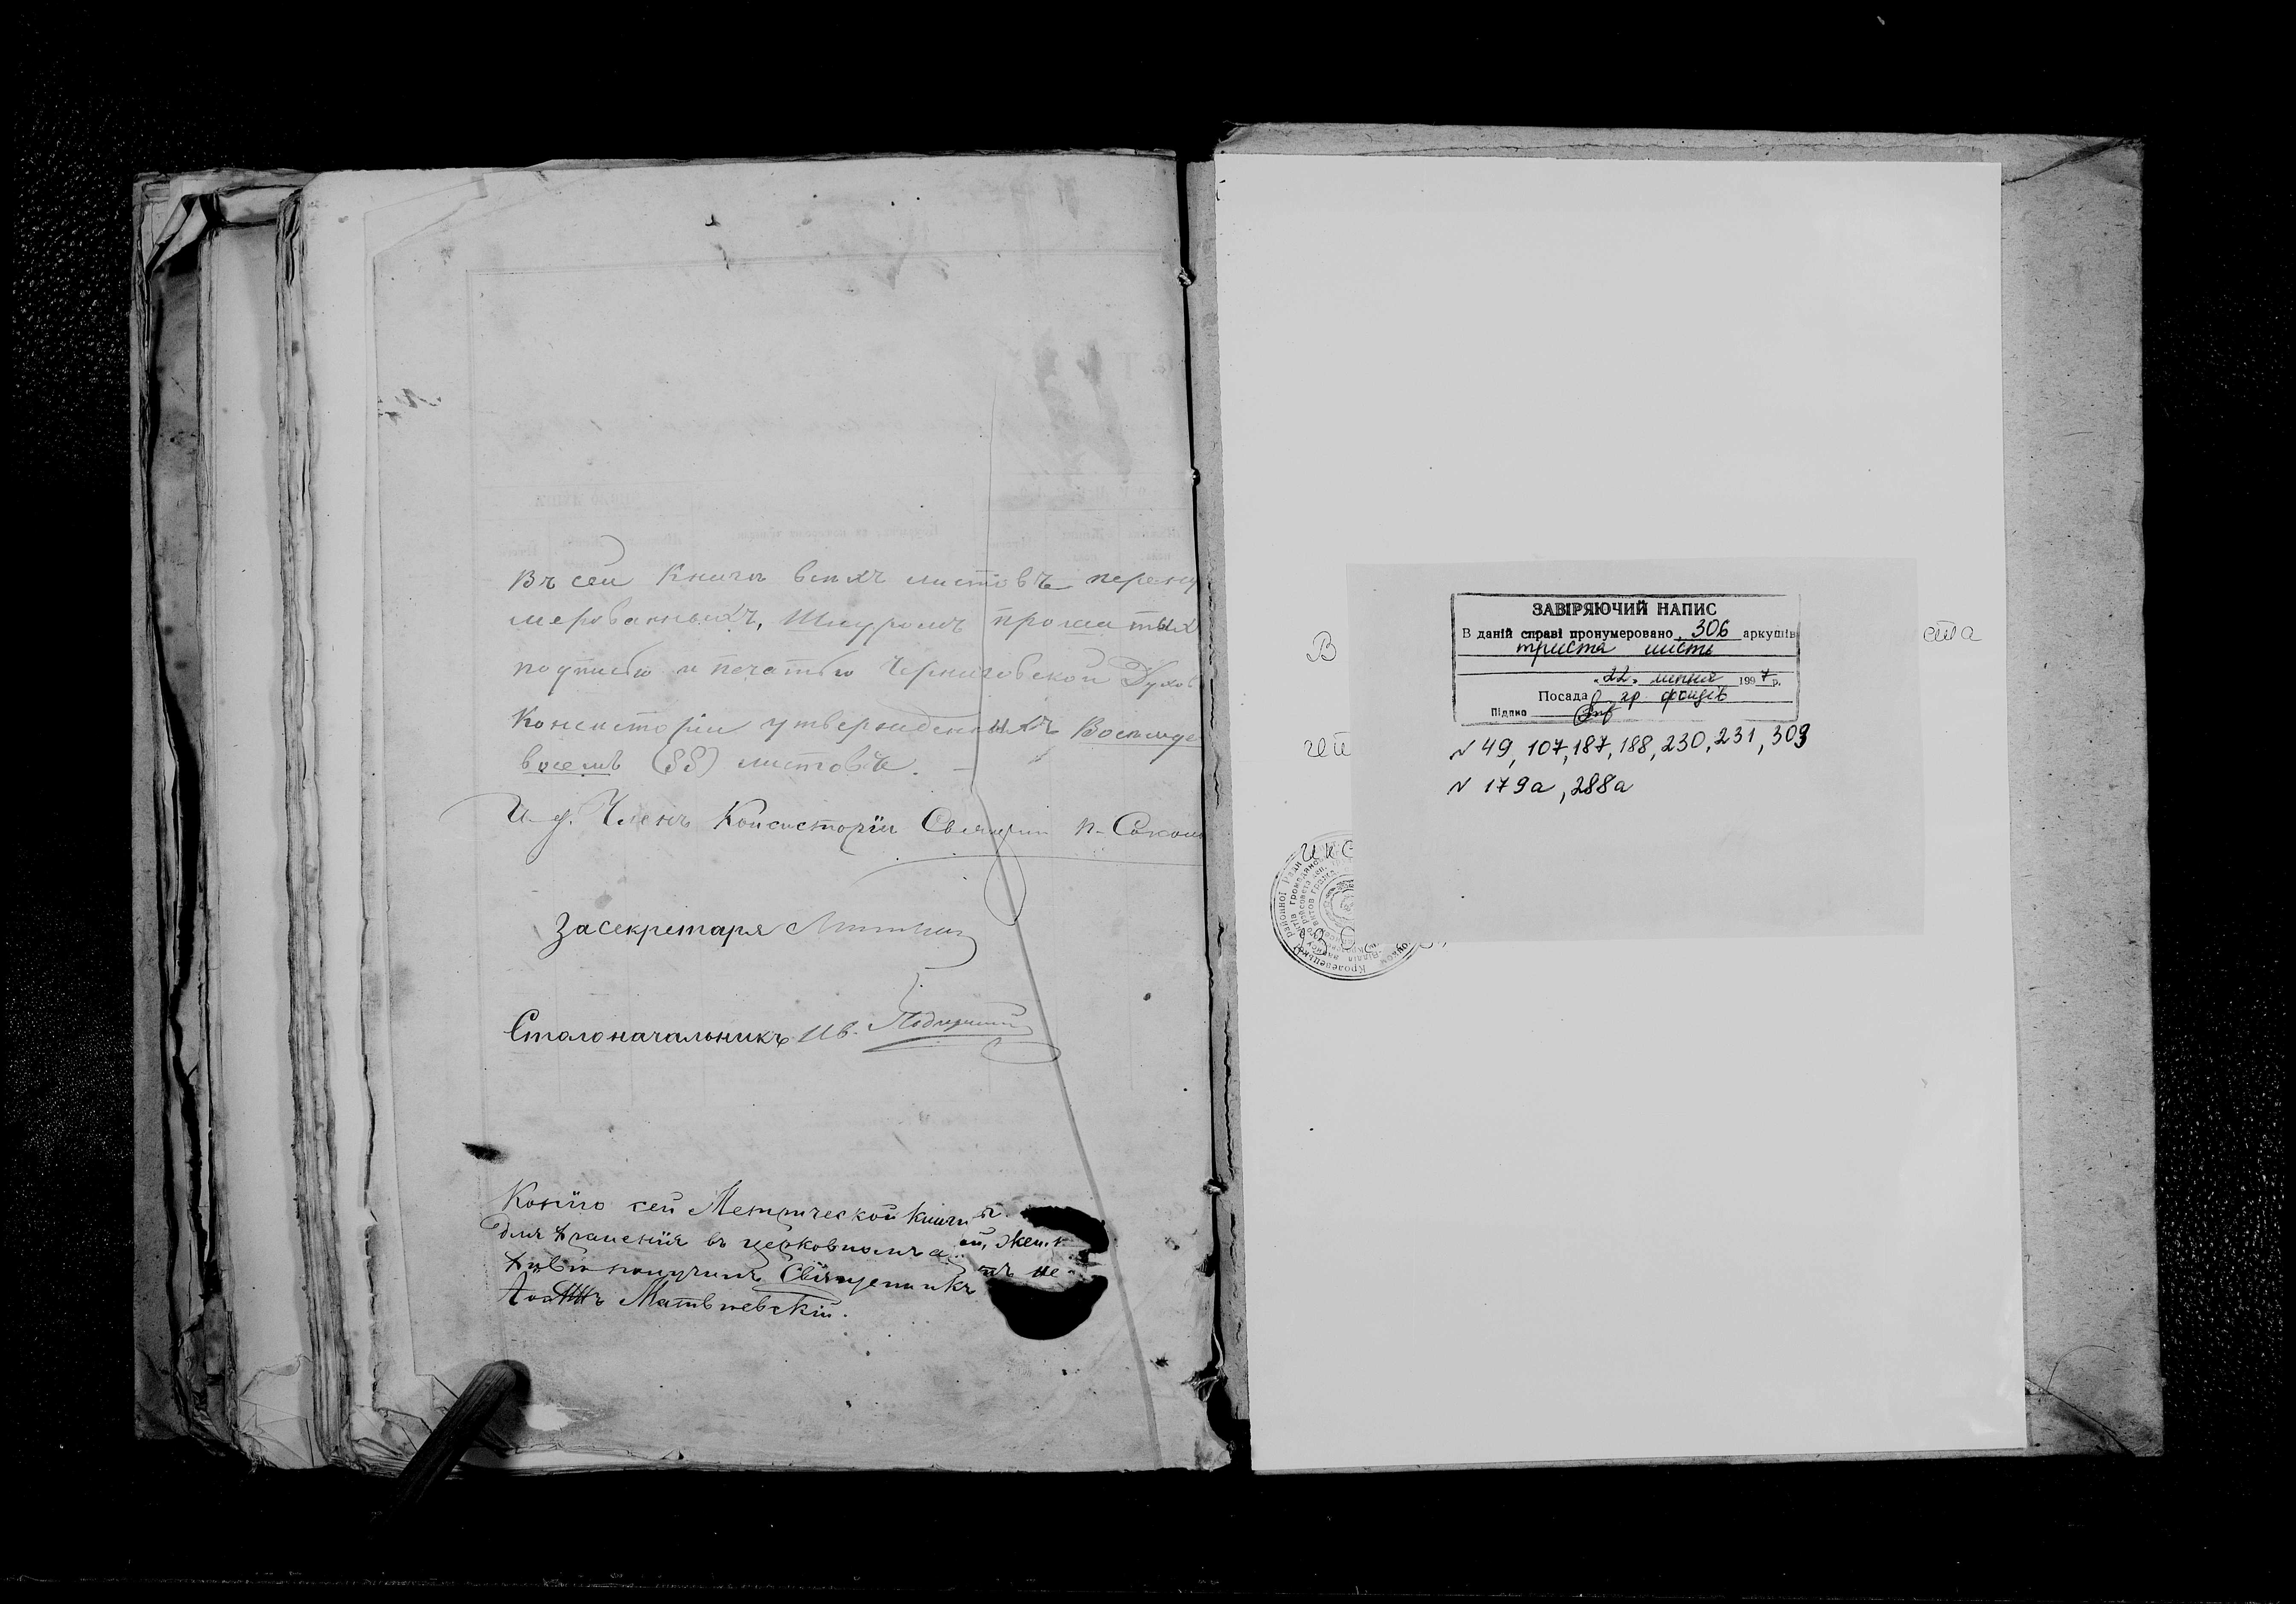 Въ сей Книгѣ всѣхъ листовъ перену
мерованныхъ, Шнуромъ прошитых
подписью и печатью Черниговской Духов
Консисторіи утвержденныхъ Восемьде
восемь (88) листовъ.
И. д. Членъ Консисторіи Священ. П. Сокол
За секретаря
Столоначальникъ Ив.
Копію сей Метрической Книги
для храненія въ церковномъ а
хивѣ получилъ Священникъ
Матвѣевскій.
ЗАВІРЯЮЧИЙ НАПИС
В даній справі пронумеровано 306 аркушів
триста шість
"22" липня 1997 р.
Посада гр. фондів
Підпис
В
ста
N 49, 107, 187, 188, 230, 231, 309
N 179а, 288а